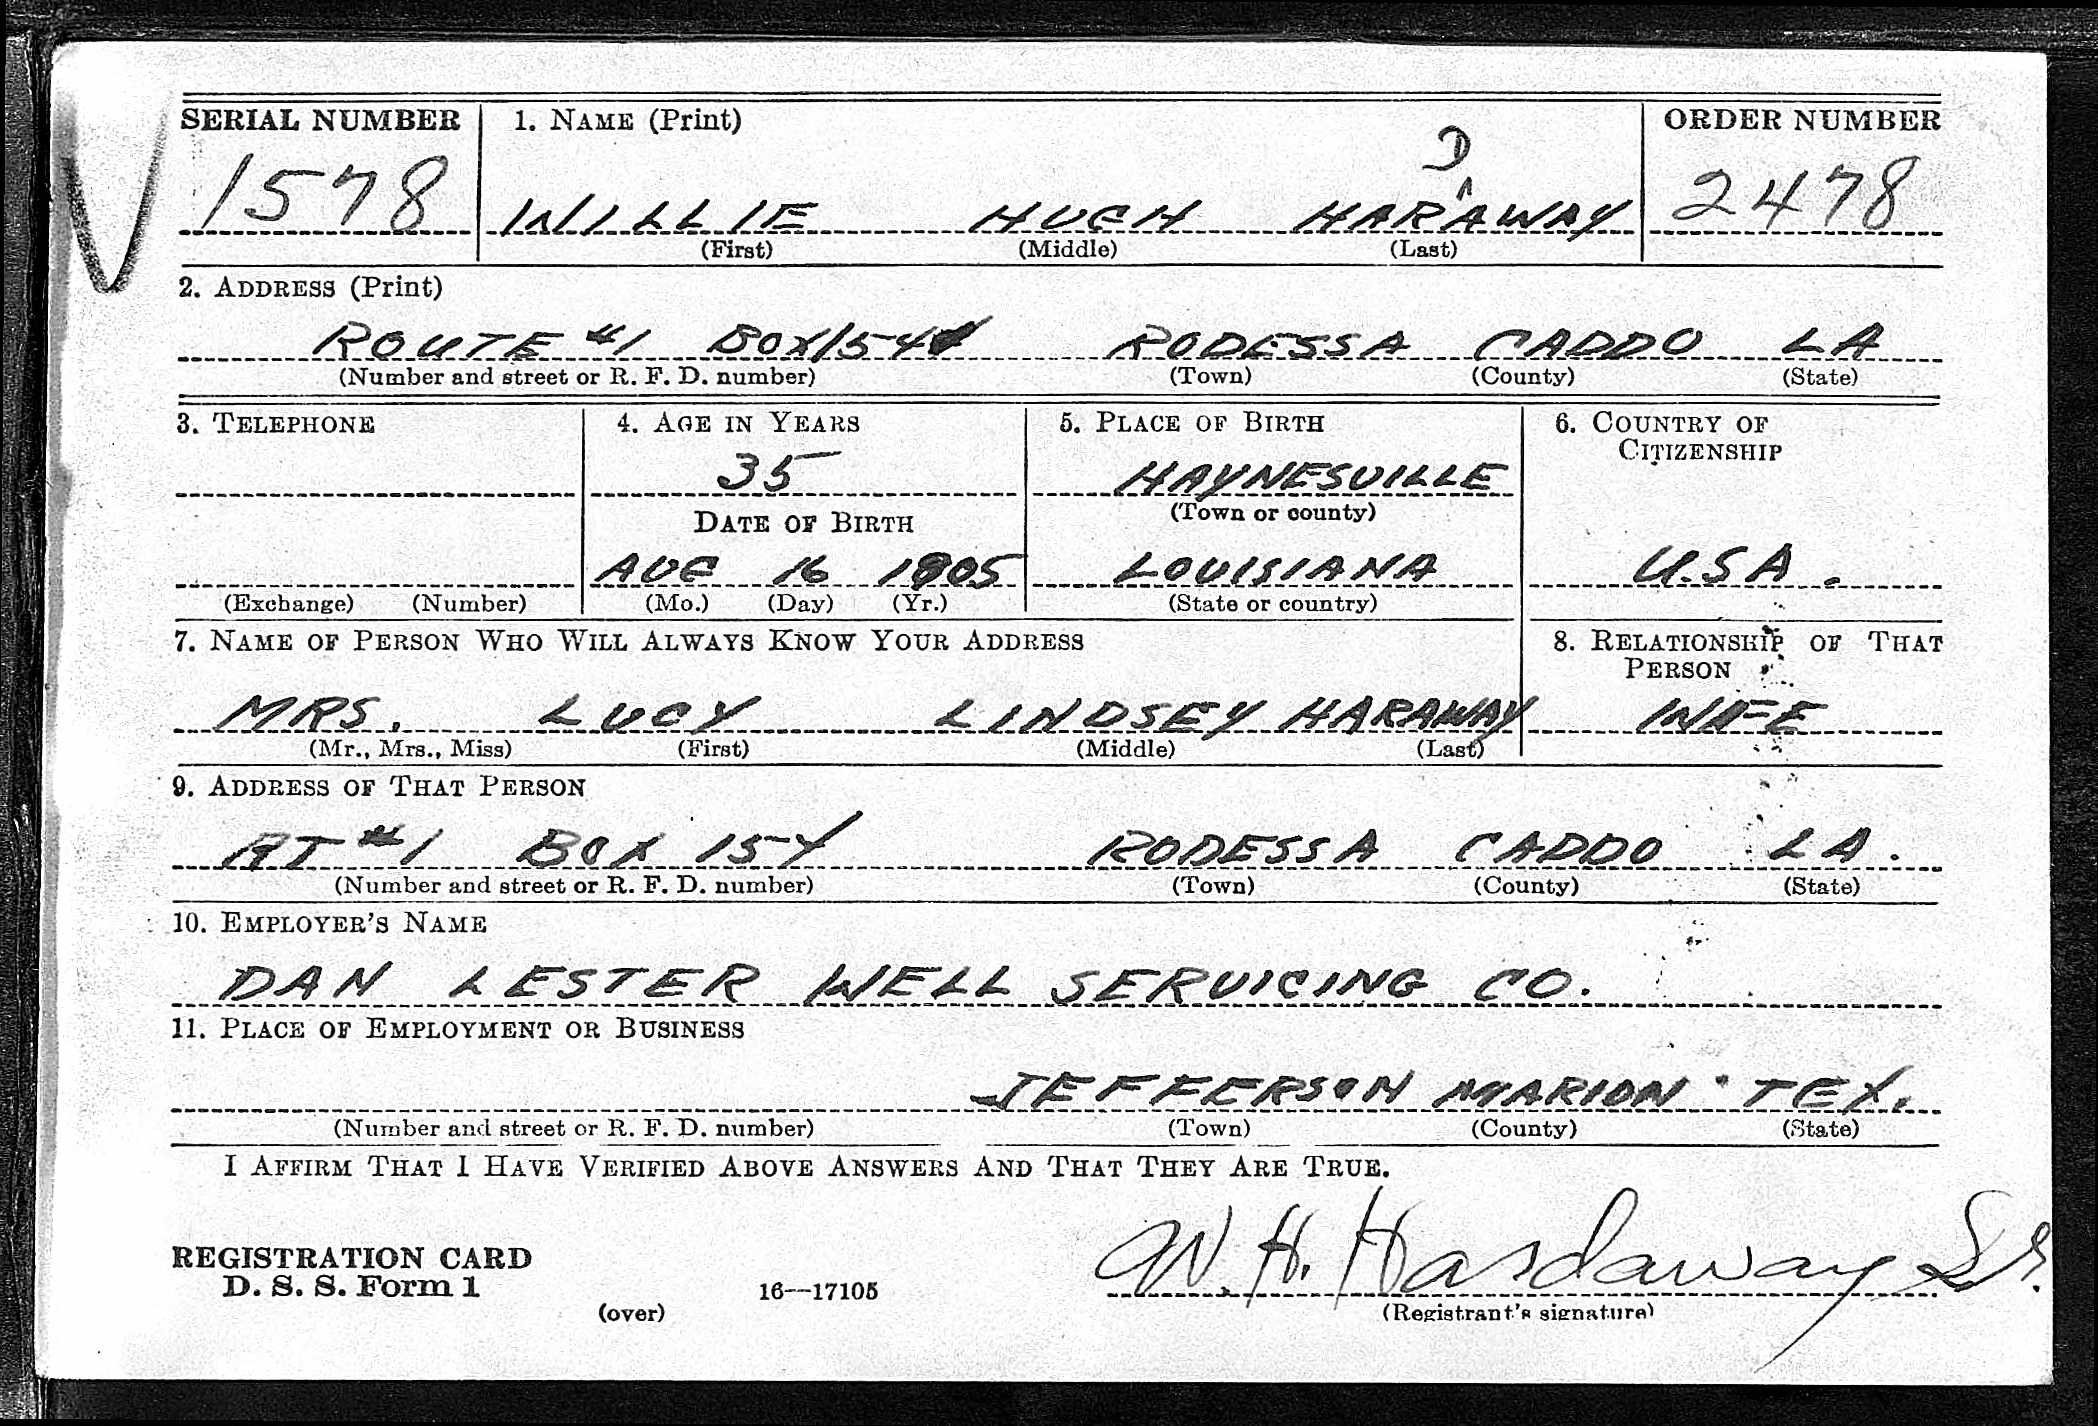 SERIAL NUMBER 1. NAME (Print) ORDER NUMBER
D
1578 WILLIE HUGH HAR^AWAY 2478
(First) (Middle) (Last)
2. ADDRESS (Print)
ROUTE #1 BOX 154 RODESSA CADDO LA
(Number and street or R. F. D. number) (Town) (County) (State)
3. TELEPHONE 4. AGE IN YEARS 5. PLACE OF BIRTH 6. COUNTRY OF
CITIZENSHIP
35 HAYNESVILLE
DATE OF BIRTH (Town or county)
AUG 16 1905 LOUISIANA U.S.A.
(Exchange) (Number) (Mo.) (Day) (Yr.) (State or country)
7. NAME OF PERSON WHO WILL ALWAYS KNOW YOUR ADDRESS 8. RELATIONSHIP OF THAT
PERSON
MRS. LUCY LINDSEY HARAWAY WIFE
(Mr., Mrs., Miss) (First) (Middle) (Last)
9. ADDRESS OF THAT PERSON
RT #1 BOX 154 RODESSA CADDO LA.
(Number and street or R. F. D. number) (Town) (County) (State)
10. EMPLOYER'S NAME
DAN LESTER WELL SERVICING CO.
11. PLACE OF EMPLOYMENT OR BUSINESS
JEFFERSON MARION TEX.
(Number and street or R. F. D. number) (Town) (County) (State)
I AFFIRM THAT I HAVE VERIFIED ABOVE ANSWERS AND THAT THEY ARE TRUE.
W. H. Hardaway Sr.
REGISTRATION CARD
D. S. S. Form 1 16—17105
(over) (Registrant's signature)